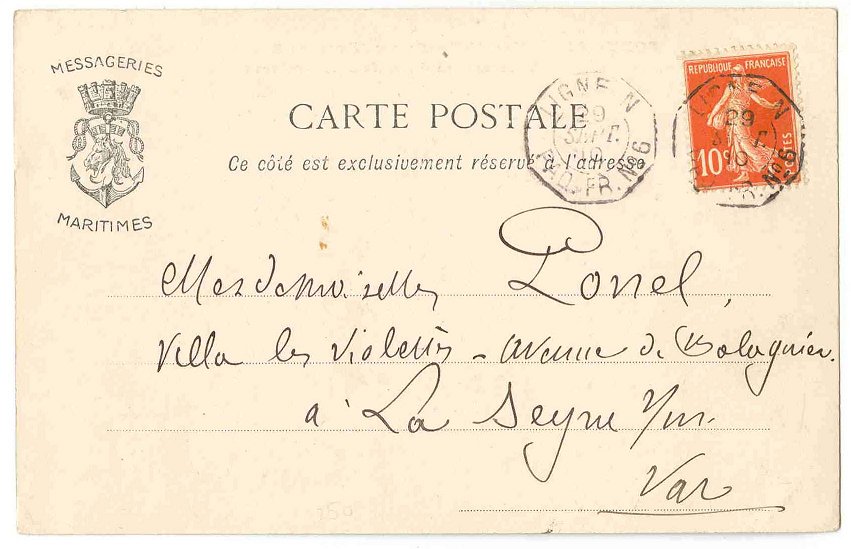 MESSAGERIES
MARITIMES
CARTE POSTALE
Ce côté est exclusivement réservé à l'adresse
LIGNE N
29
SEPT.
10
PAQ. FR. No 6
REPUBLIQUE FRANÇAISE
10c
POSTES
LIGNE N
29
10
FR. No 6
Mesdemoiselles Ponel,
Villa les Violettes - Avenue de Balaguier.
à La Seyne s/mer
Var
250